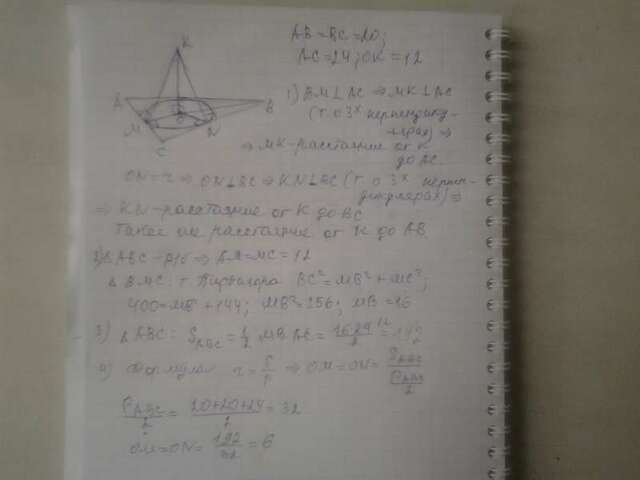 K
A
B
M
N
C
AB = BC = 20;
AC = 24; OK = 12
1) BM ⊥ AC ⇒ MK ⊥ AC
(т. о 3х перпендику-
лярах) ⇒
⇒ MK - расстояние от K
до AC
ON = r ⇒ ON ⊥ BC ⇒ KN ⊥ BC (т. о 3х перпен-
дикулярах) ⇒
⇒ KN - расстояние от K до BC
Такое же расстояние от K до AB.
2) Δ ABC - р/б ⇒ AM = MC = 12
Δ BMC: т. Пифагора BC² = MB² + MC²;
400 = MB² + 144; MB² = 256; MB = 16
3) Δ ABC: S_ABC = 1/2 MB·AC = 16·24/2 = 192
4) Формула r = S/p ⇒ OM = ON = S_ABC / (P_ABC/2)
P_ABC/2 = (20+20+24)/2 = 32
OM = ON = 192/32 = 6